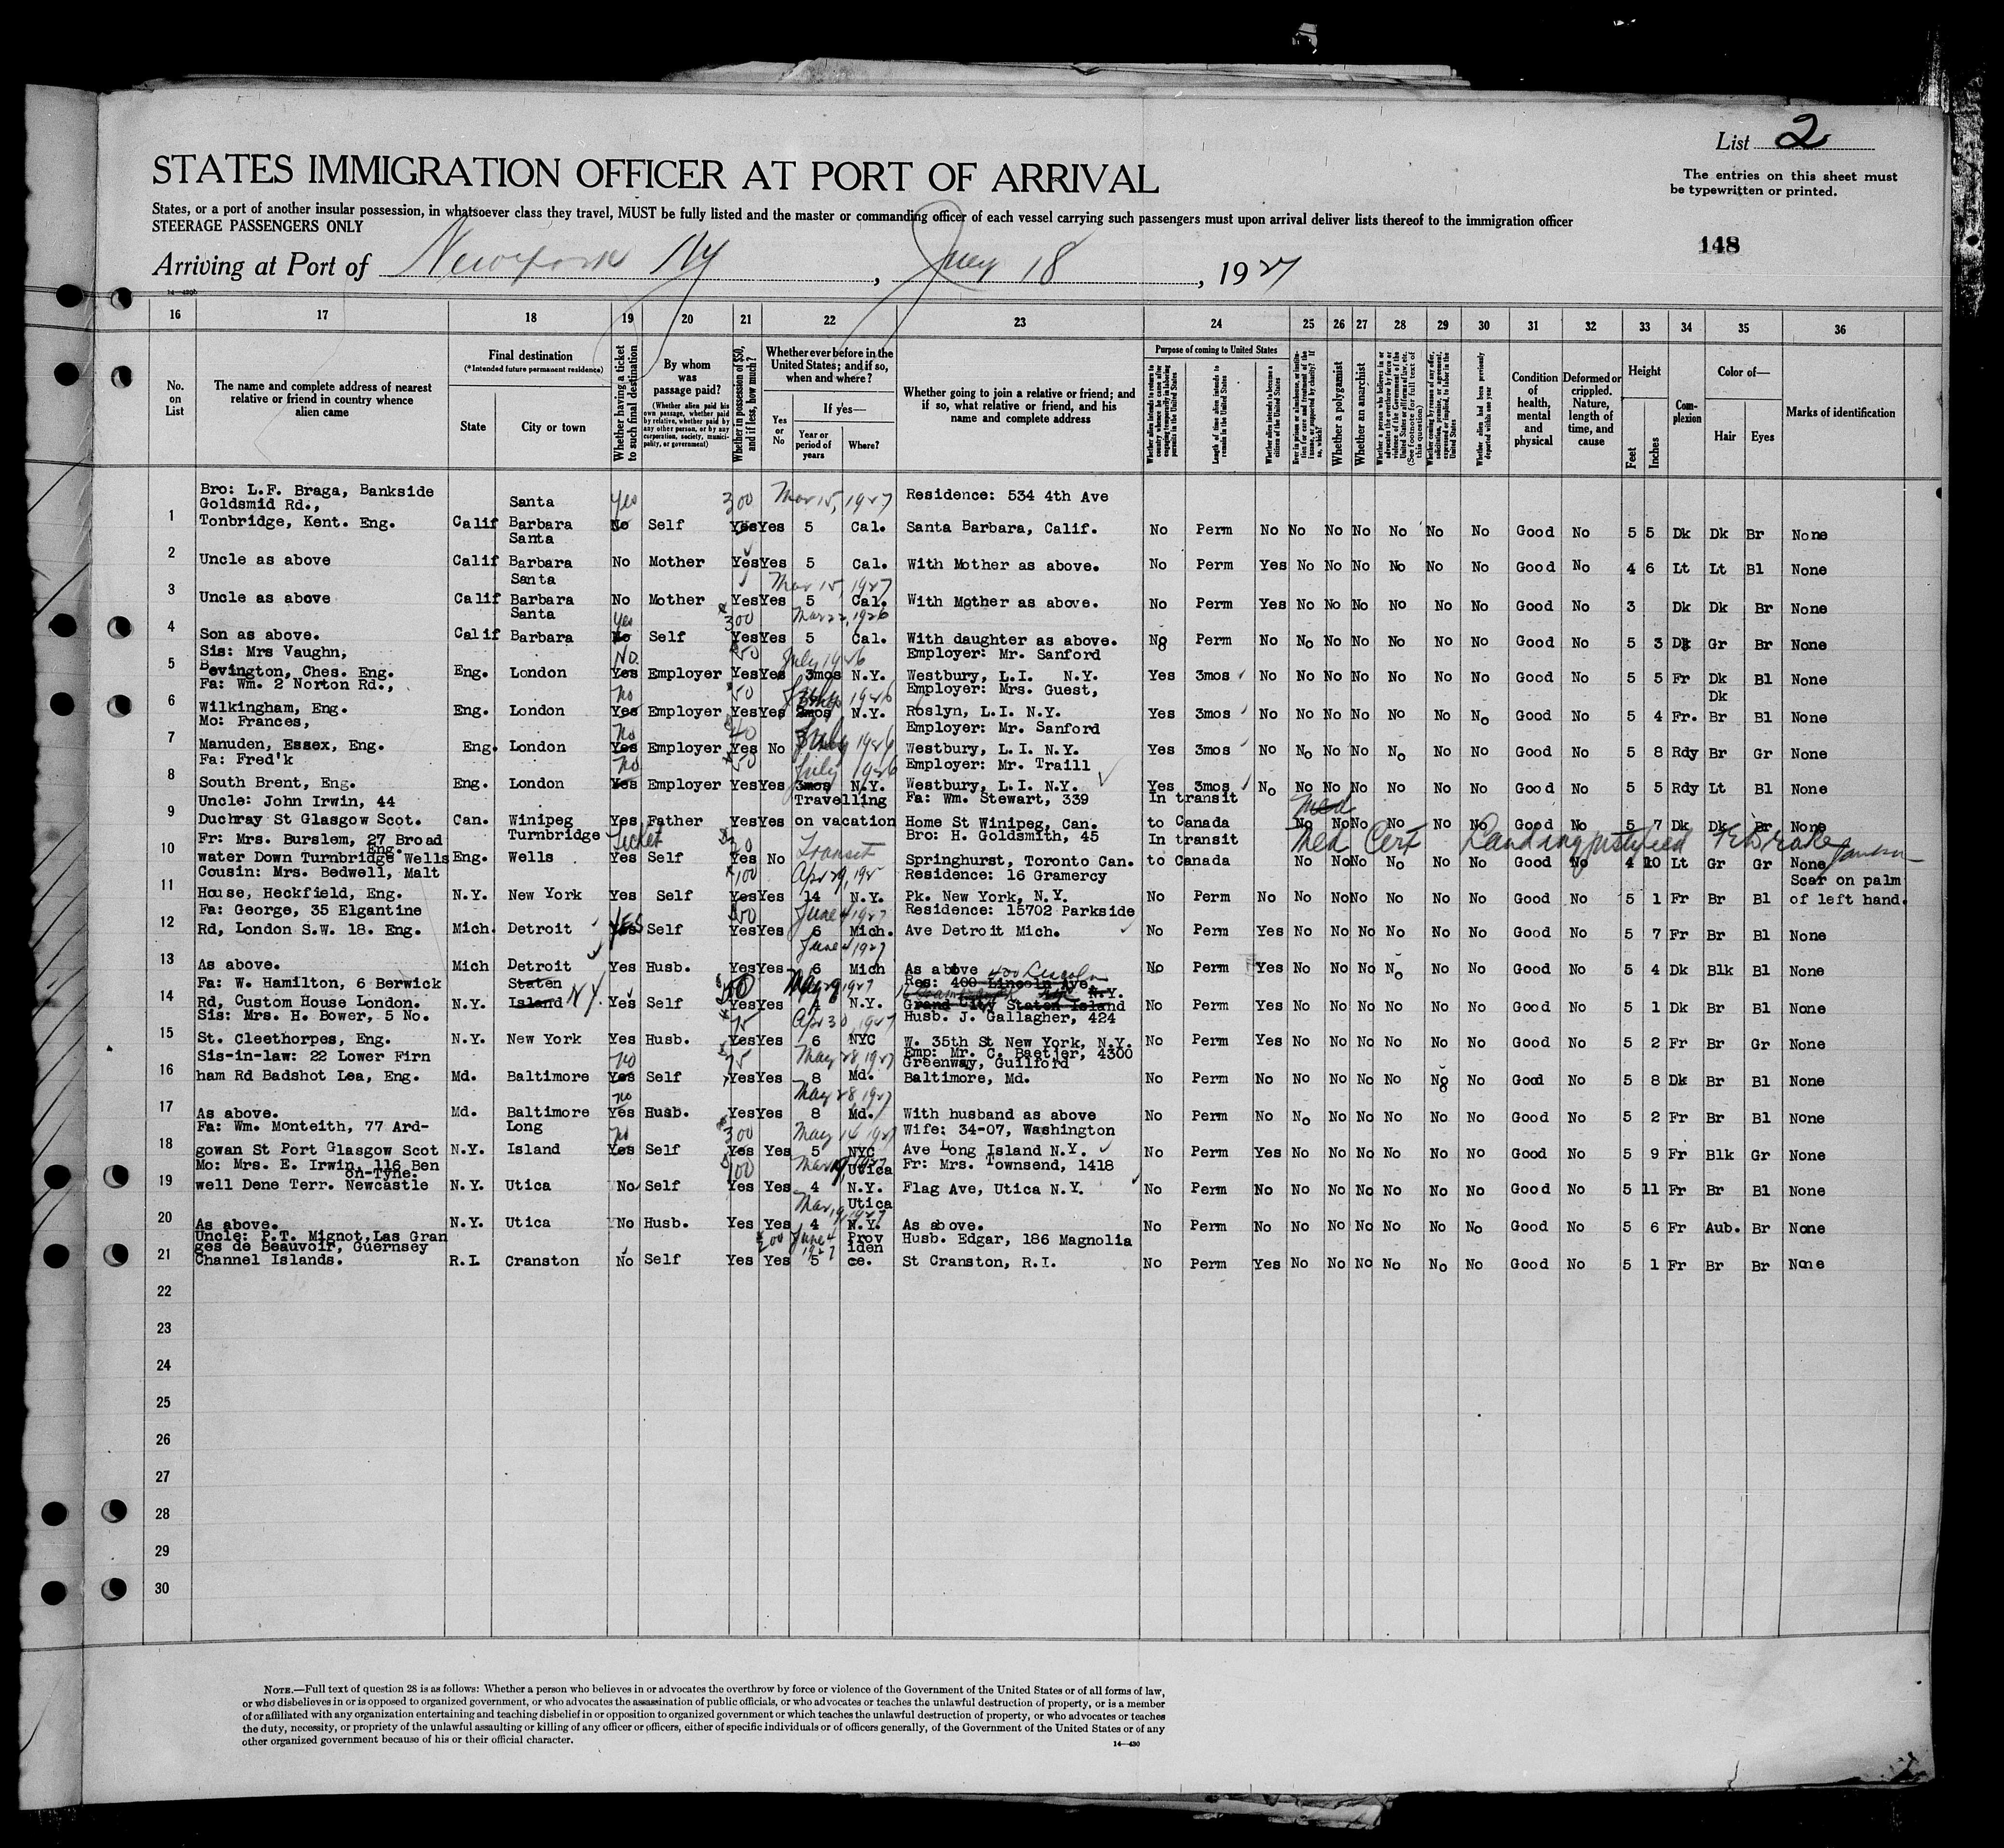 List 2
STATES IMMIGRATION OFFICER AT PORT OF ARRIVAL
The entries on this sheet must
be typewritten or printed.
States, or a port of another insular possession, in whatsoever class they travel, MUST be fully listed and the master or commanding officer of each vessel carrying such passengers must upon arrival deliver lists thereof to the immigration officer
STEERAGE PASSENGERS ONLY
148
Arriving at Port of New York NY, 18, 1927
16 17 18 19 20 21 22 23 24 25 26 27 28 29 30 31 32 33 34 35 36
No. on List
The name and complete address of nearest relative or friend in country whence alien came
Final destination
(*Intended future permanent residence)
State
City or town
Whether having a ticket to such final destination
By whom was passage paid?
(Whether alien paid his own passage, whether paid by relative, whether paid by any other person, or by any corporation, society, municipality, or government)
Whether in possession of $50, and if less, how much?
Whether ever before in the United States; and if so, when and where?
Yes or No
If yes—
Year or period of years
Where?
Whether going to join a relative or friend; and if so, what relative or friend, and his name and complete address
Purpose of coming to United States
Length of time alien intends to remain in the United States
Whether alien intends to become a citizen of the United States
Whether a polygamist
Whether an anarchist
Whether alien had been previously deported within one year
Condition of health, mental and physical
Deformed or crippled. Nature, length of time, and cause
Height
Feet
Inches
Complexion
Color of—
Hair
Eyes
Marks of identification
Bro: L.F. Braga, Bankside Santa yes 300 Mar 15, 1927 Residence: 534 4th Ave
Goldsmid Rd.,
1 Tonbridge, Kent. Eng. Calif Barbara No Self Yes Yes 5 Cal. Santa Barbara, Calif. No Perm No No No No No No No Good No 5 5 Dk Dk Br None
Santa
2 Uncle as above Calif Barbara No Mother Yes Yes 5 Cal. With Mother as above. No Perm Yes No No No No No No Good No 4 6 Lt Lt Bl None
Santa Mar 15, 1927
3 Uncle as above Calif Barbara No Mother Yes Yes 5 Cal. With Mother as above. No Perm Yes No No No No No No Good No 3 Dk Dk Br None
Santa yes 300 Mar 22, 1926
4 Son as above. Calif Barbara No Self Yes Yes 5 Cal. With daughter as above. No Perm No No No No No No No Good No 5 3 Dk Gr Br None
Sis: Mrs Vaughn, No 50 July 1926 Employer: Mr. Sanford
5 Bevington, Ches. Eng. Eng. London Yes Employer Yes Yes 3mos N.Y. Westbury, L.I. N.Y. Yes 3mos No No No No No No No Good No 5 5 Fr Dk Bl None
Fa: Wm. 2 Norton Rd., no 50 1926 Employer: Mrs. Guest, Dk
6 Wilkingham, Eng. Eng. London Yes Employer Yes Yes 2mos N.Y. Roslyn, L.I. N.Y. Yes 3mos No No No No No No No Good No 5 4 Fr. Br Bl None
Mo: Frances, no 40 Employer: Mr. Sanford
7 Manuden, Essex, Eng. Eng. London Yes Employer Yes No July 1926 Westbury, L.I. N.Y. Yes 3mos No No No No No No No Good No 5 8 Rdy Br Gr None
Fa: Fred'k no 50 July 1926 Employer: Mr. Traill
8 South Brent, Eng. Eng. London Yes Employer Yes Yes 3mos N.Y. Westbury, L.I. N.Y. Yes 3mos No No No No No No No Good No 5 5 Rdy Lt Bl None
Uncle: John Irwin, 44 Travelling Fa: Wm. Stewart, 339 In transit Med
9 Duchray St Glasgow Scot. Can. Winipeg Yes Father Yes Yes on vacation Home St Winipeg, Can. to Canada No No No No No No Good No 5 7 Dk Dk Br None
Fr: Mrs. Burslem, 27 Broad Turnbridge Ticket 30 Transit Bro: H. Goldsmith, 45 In transit Med Cert Landing justified
Eng.
10 water Down Turnbridge Wells Eng. Wells Yes Self Yes No Springhurst, Toronto Can. to Canada No No No No No No Good No 4 10 Lt Gr Gr None
Cousin: Mrs. Bedwell, Malt 100 Apr 29, 192 Residence: 16 Gramercy Scar on palm
11 House, Heckfield, Eng. N.Y. New York Yes Self Yes Yes 14 N.Y. Pk. New York, N.Y. No Perm No No No No No No No Good No 5 1 Fr Br Bl of left hand.
Fa: George, 35 Elgantine 50 June 4 1927 Residence: 15702 Parkside
12 Rd, London S.W. 18. Eng. Mich. Detroit YES Self Yes Yes 6 Mich. Ave Detroit Mich. No Perm Yes No No No No No No Good No 5 7 Fr Br Bl None
June 4 1927
13 As above. Mich Detroit Yes Husb. Yes Yes 6 Mich As above No Perm Yes No No No No No No Good No 5 4 Dk Blk Bl None
400 Lincoln
Fa: W. Hamilton, 6 Berwick Staten 50 1927 Res: 400 Lincoln Ave,
14 Rd, Custom House London. N.Y. Island N.Y. Yes Self Yes Yes 4 N.Y. Grand City Staten Island N.Y. No Perm Yes No No No No No No Good No 5 1 Dk Br Bl None
Sis: Mrs. H. Bower, 5 No. 75 Apr 30, 1927 Husb. J. Gallagher, 424
15 St. Cleethorpes, Eng. N.Y. New York Yes Husb. Yes Yes 6 NYC W. 35th St New York, N.Y. No Perm Yes No No No No No No Good No 5 2 Fr Br Gr None
Sis-in-law: 22 Lower Firn no 75 May 28, 1927 Emp: Mr. C. Baetjer, 4300
Greenway, Guilford
16 ham Rd Badshot Lea, Eng. Md. Baltimore Yes Self Yes Yes 8 Md. Baltimore, Md. No Perm No No No No No No No Good No 5 8 Dk Br Bl None
no May 28 1927
17 As above. Md. Baltimore Yes Husb. Yes Yes 8 Md. With husband as above No Perm No No No No No No No Good No 5 2 Fr Br Bl None
Fa: Wm. Monteith, 77 Ard- Long no 300 May 14 1927 Wife: 34-07, Washington
18 gowan St Port Glasgow Scot N.Y. Island Yes Self Yes Yes 5 NYC Ave Long Island N.Y. No Perm Yes No No No No No No Good No 5 9 Fr Blk Gr None
Mo: Mrs. E. Irwin, 116 Ben 100 Mar 19, 1927 Utica Fr: Mrs. Townsend, 1418
on-Tyne.
19 well Dene Terr. Newcastle N.Y. Utica No Self Yes Yes 4 N.Y. Flag Ave, Utica N.Y. No Perm No No No No No No No Good No 5 11 Fr Br Bl None
Mar 19, 1927 Utica
20 As above. N.Y. Utica No Husb. Yes Yes 4 N.Y. As above. No Perm No No No No No No No Good No 5 6 Fr Aub. Br None
Uncle: P.T. Mignot, Las Gran 200 June 4 1927 Prov Husb. Edgar, 186 Magnolia
ges de Beauvoir, Guernsey iden
21 Channel Islands. R.I. Cranston No Self Yes Yes 5 ce. St Cranston, R.I. No Perm Yes No No No No No No Good No 5 1 Fr Br Br None
22
23
24
25
26
27
28
29
30
NOTE.—Full text of question 28 is as follows: Whether a person who believes in or advocates the overthrow by force or violence of the Government of the United States or of all forms of law,
or who disbelieves in or is opposed to organized government, or who advocates the assassination of public officials, or who advocates or teaches the unlawful destruction of property, or is a member
of or affiliated with any organization entertaining and teaching disbelief in or opposition to organized government or which teaches the unlawful destruction of property, or who advocates or teaches
the duty, necessity, or propriety of the unlawful assaulting or killing of any officer or officers, either of specific individuals or of officers generally, of the Government of the United States or of any
other organized government because of his or their official character.
14—430